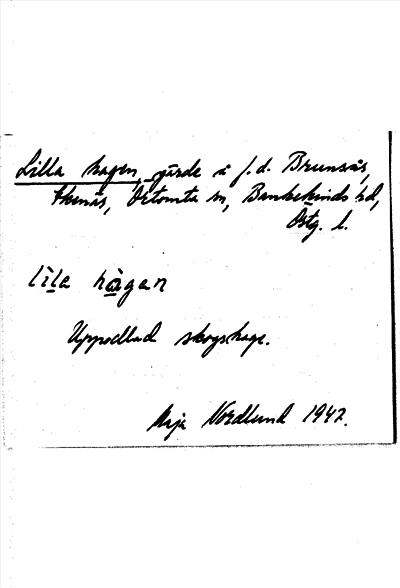 Lilla hagen, gärde å f.d. Brunsås,
Ekenäs, Örtomta sn, Bankekinds hd,
Östg. l.
lila hagan
Uppodlad skogshage.
Maja Nordlund 1942.